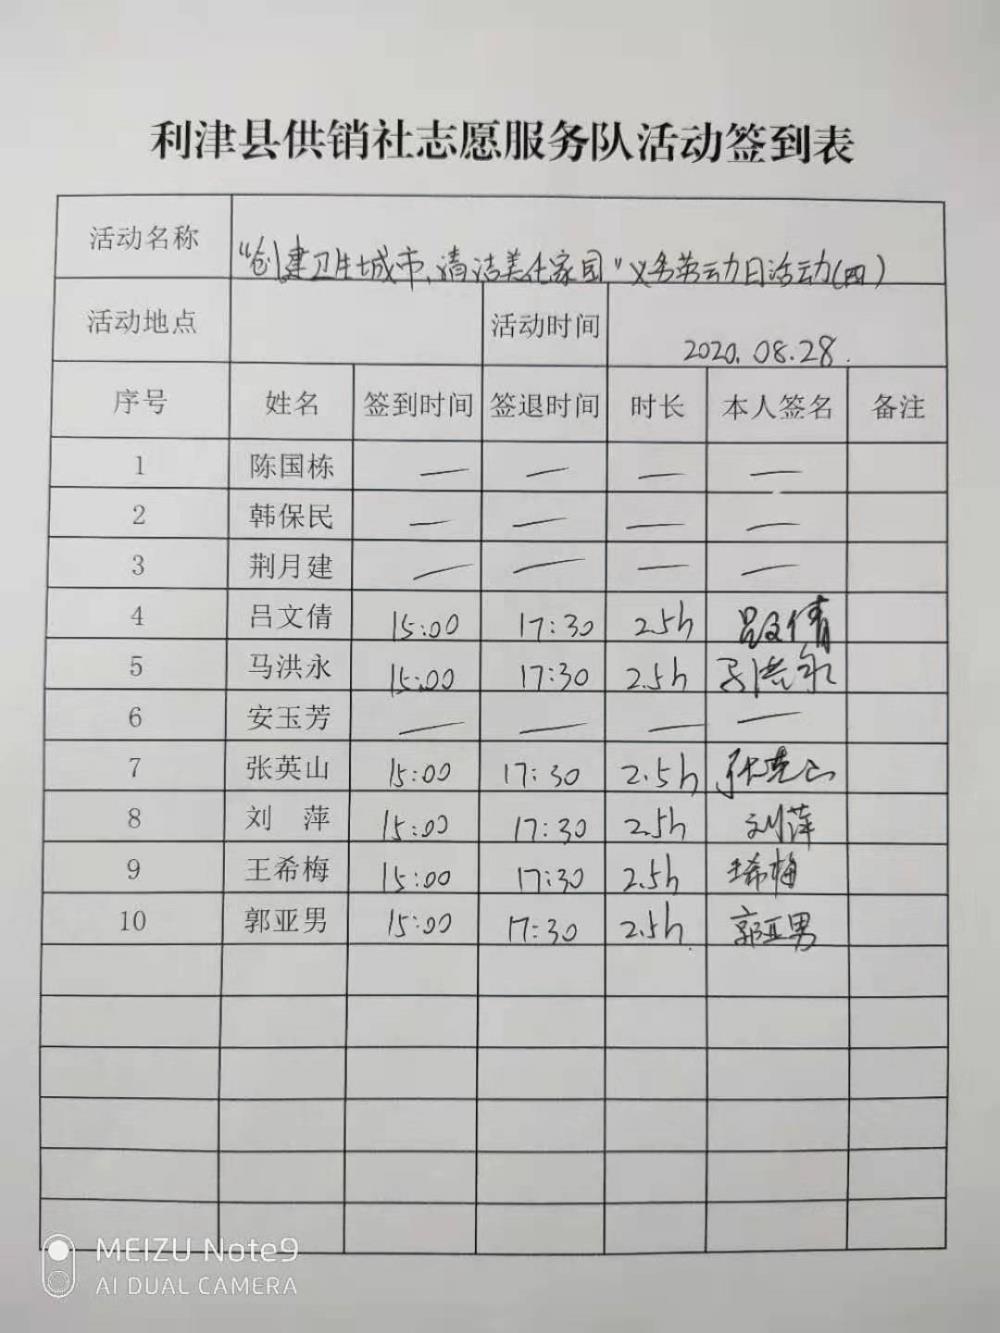 利津县供销社志愿服务队活动签到表
活动名称 “创建卫生城市、清洁美在家园”义务劳动日活动(四)
活动地点 活动时间 2020.08.28.
序号 姓名 签到时间 签退时间 时长 本人签名 备注
1 陈国栋 — — — —
2 韩保民 — — — —
3 荆月建 — — — —
4 吕文倩 15:00 17:30 2.5h 吕文倩
5 马洪永 15:00 17:30 2.5h 马洪永
6 安玉芳 — — — —
7 张英山 15:00 17:30 2.5h 张英山
8 刘 萍 15:00 17:30 2.5h 刘萍
9 王希梅 15:00 17:30 2.5h 王希梅
10 郭亚男 15:00 17:30 2.5h 郭亚男
MEIZU Note9
AI DUAL CAMERA